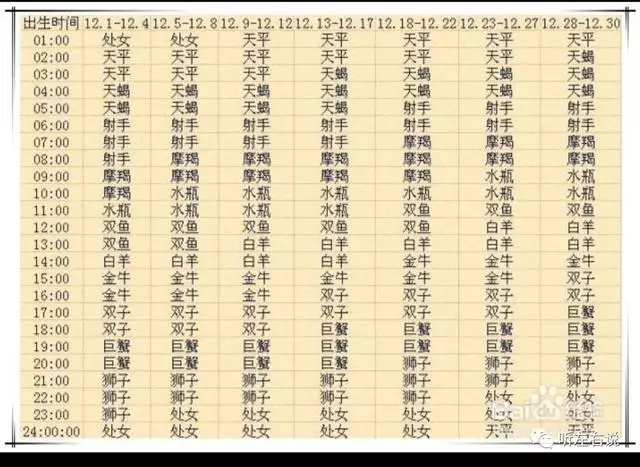 出生时间 12.1-12.4 12.5-12.8 12.9-12.12 12.13-12.17 12.18-12.22 12.23-12.27 12.28-12.30
01:00 处女 处女 天平 天平 天平 天平 天平
02:00 天平 天平 天平 天平 天平 天平 天蝎
03:00 天平 天平 天平 天平 天蝎 天蝎 天蝎
04:00 天蝎 天蝎 天蝎 天蝎 天蝎 天蝎 天蝎
05:00 天蝎 天蝎 天蝎 天蝎 射手 射手 射手
06:00 射手 射手 射手 射手 射手 射手 射手
07:00 射手 射手 射手 射手 摩羯 摩羯 摩羯
08:00 射手 摩羯 摩羯 摩羯 摩羯 摩羯 摩羯
09:00 摩羯 摩羯 摩羯 摩羯 摩羯 水瓶 水瓶
10:00 摩羯 水瓶 水瓶 水瓶 水瓶 水瓶 水瓶
11:00 水瓶 水瓶 水瓶 水瓶 双鱼 双鱼 双鱼
12:00 双鱼 双鱼 双鱼 双鱼 双鱼 白羊 白羊
13:00 双鱼 双鱼 白羊 白羊 白羊 白羊 白羊
14:00 白羊 白羊 白羊 白羊 金牛 金牛 金牛
15:00 金牛 金牛 金牛 金牛 金牛 金牛 双子
16:00 金牛 金牛 金牛 双子 双子 双子 双子
17:00 双子 双子 双子 双子 双子 双子 巨蟹
18:00 双子 双子 双子 巨蟹 巨蟹 巨蟹 巨蟹
19:00 巨蟹 巨蟹 巨蟹 巨蟹 巨蟹 巨蟹 巨蟹
20:00 巨蟹 巨蟹 巨蟹 巨蟹 狮子 狮子 狮子
21:00 狮子 狮子 狮子 狮子 狮子 狮子 狮子
22:00 狮子 狮子 狮子 狮子 狮子 处女 处女
23:00 狮子 处女 处女 处女 处女 处女
24:00:00 处女 处女 处女 处女 处女 天平 天平
Baidu经验
听左右说